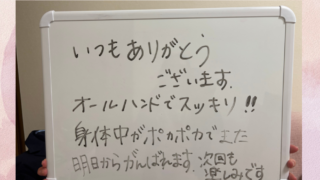 いつもありがとう
ございます.
オールハンドでスッキリ!!
身体中がポカポカでまた
明日からがんばれます. 次回も
楽しみです